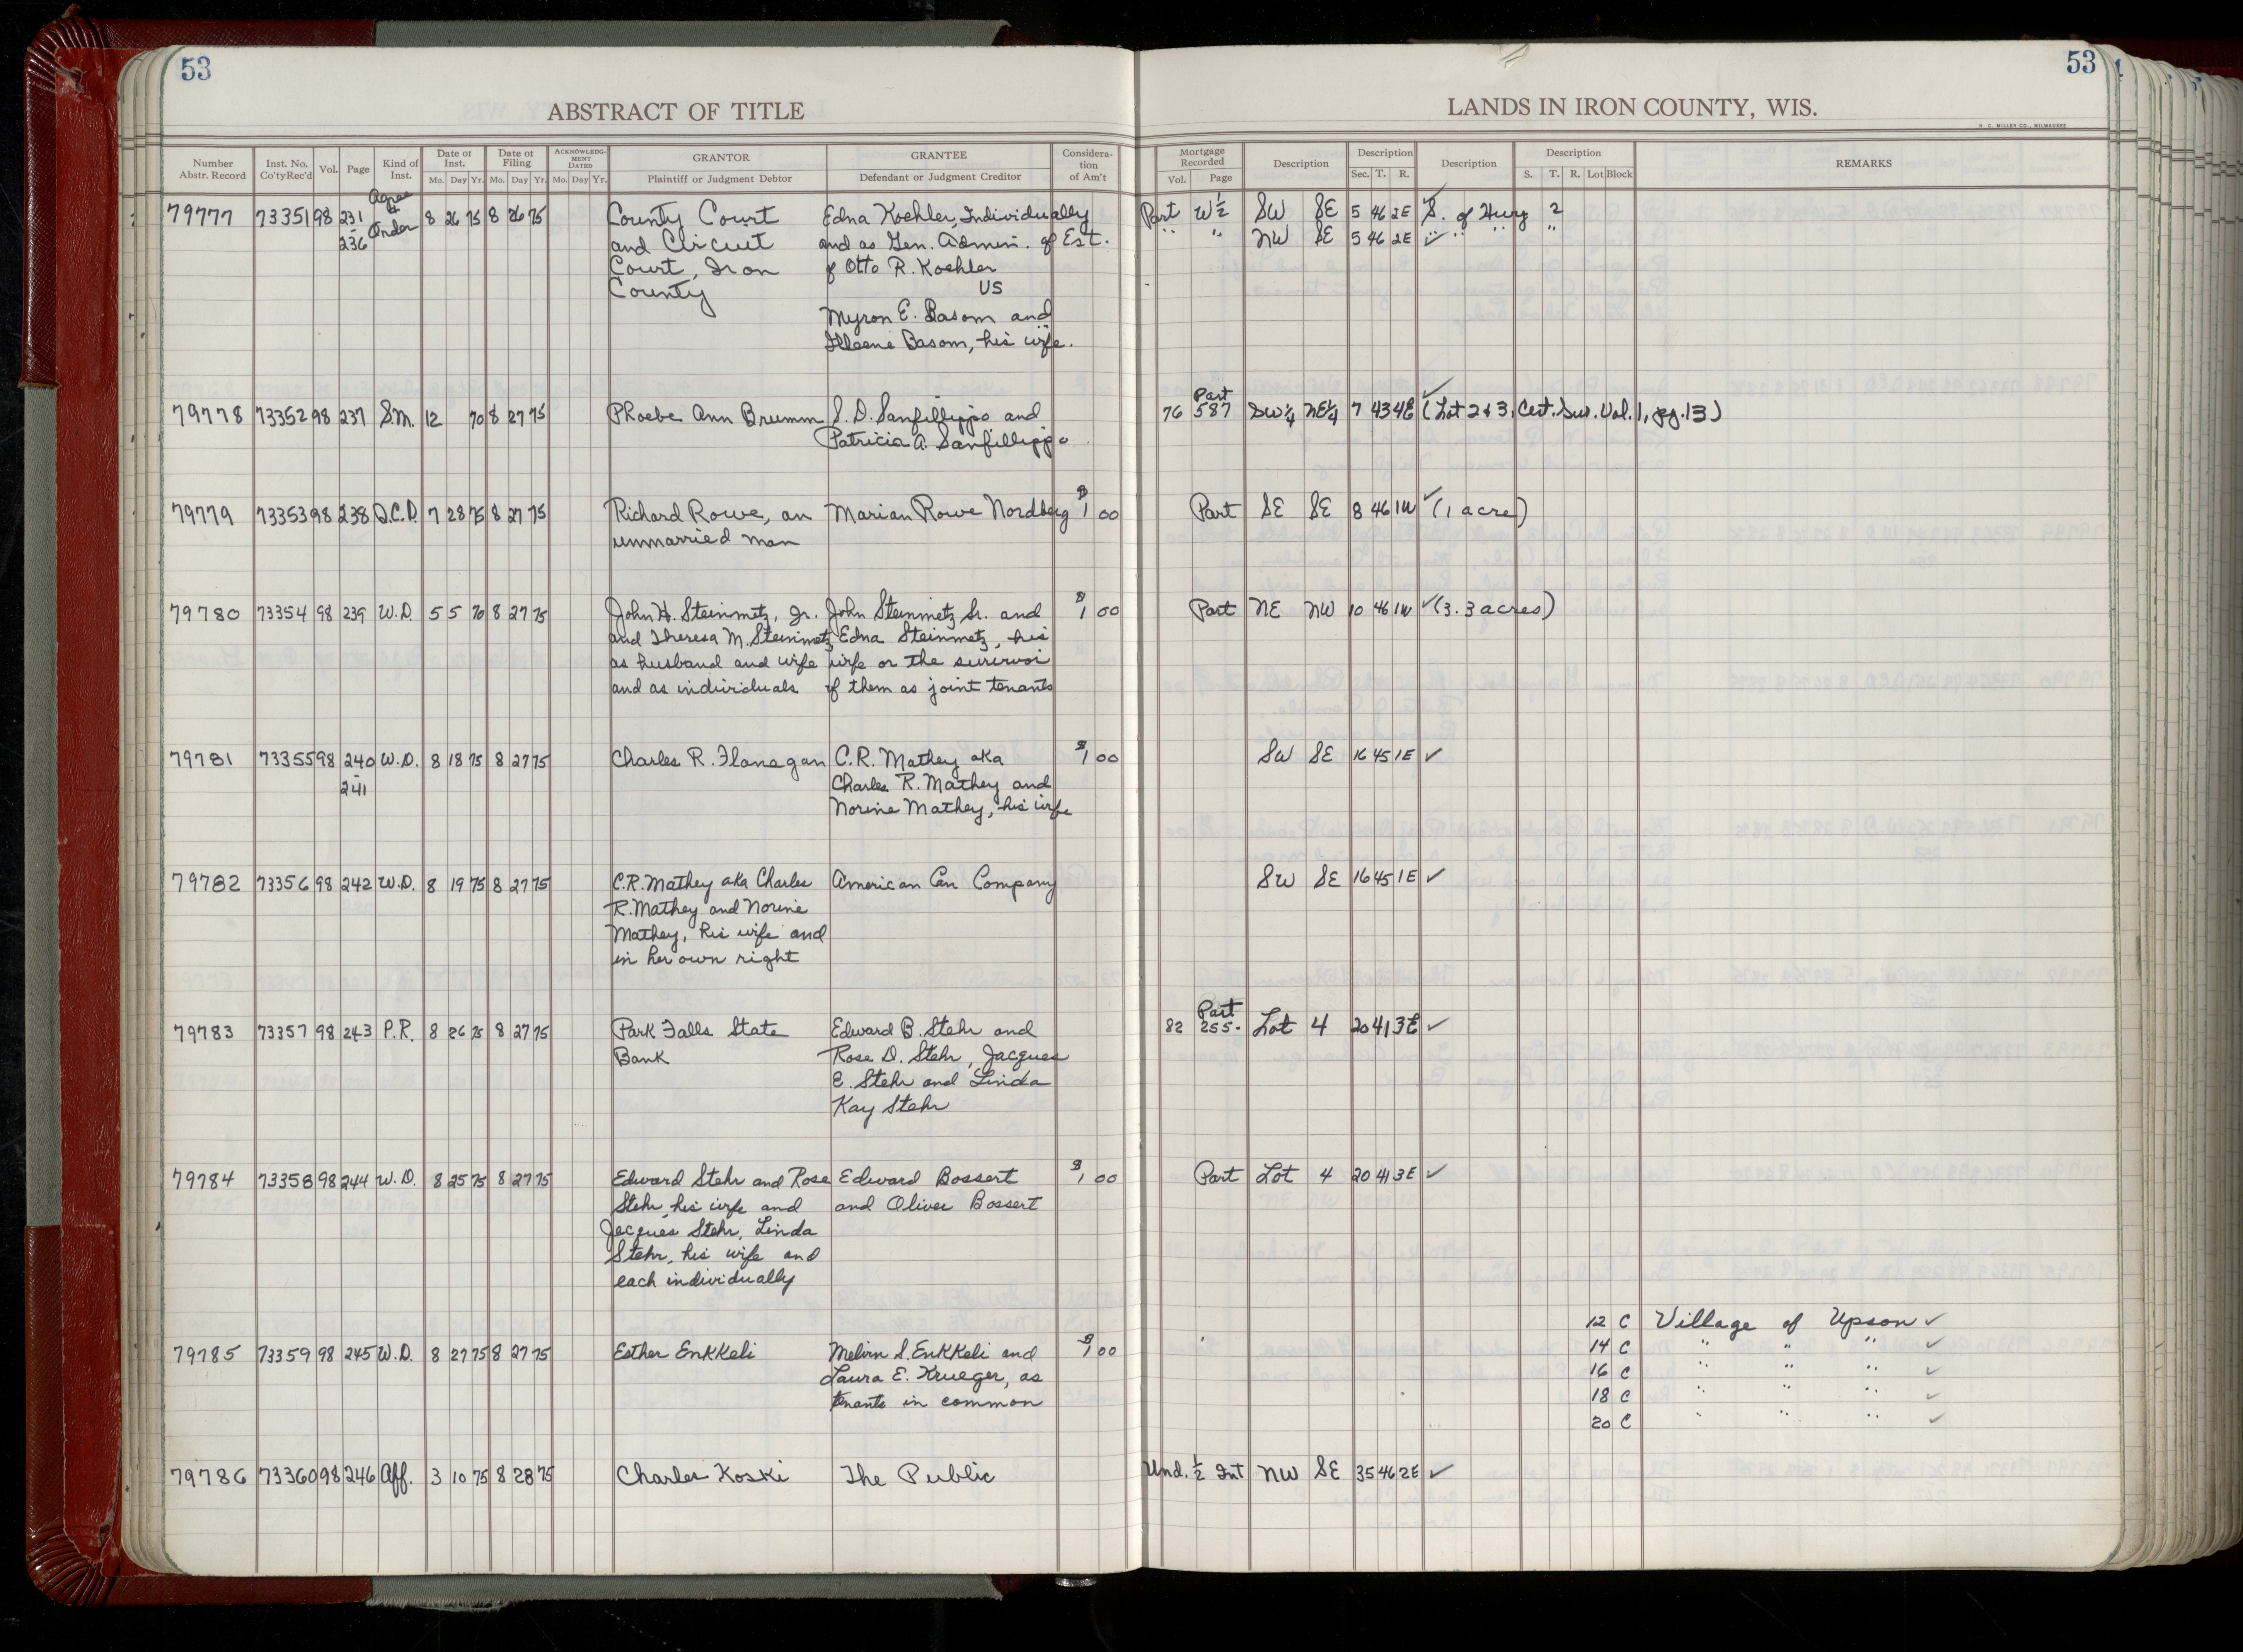 53
53
ABSTRACT OF TITLE
LANDS IN IRON COUNTY, WIS.
H. C. MILLER CO., MILWAUKEE
Number Abstr. Record Inst. No. Co'ty Rec'd Vol. Page Kind of Inst. Date of Inst. Mo. Day Yr. Date of Filing Mo. Day Yr. ACKNOWLEDGMENT DATED Mo. Day Yr. GRANTOR Plaintiff or Judgment Debtor GRANTEE Defendant or Judgment Creditor Consideration of Am't Mortgage Recorded Vol. Page Description Description Sec. T. R. Description Description S. T. R. Lot Block REMARKS
Agree
&
79777 73351 98 231 Order 8 26 75 8 26 75 County Court Edna Koehler, Individually Part W½ SW SE 5 46 2E ✓ S. of Hwy 2
- 236 and Circuit and as Gen. Admin. of Est. " " NW SE 5 46 2E ✓ " " " "
Court, Iron of Otto R. Koehler
County US
Myron E. Basom and
Illeene Basom, his wife.
Part
79778 73352 98 237 S.M. 12 70 8 27 75 Phoebe Ann Brumm S. D. Sanfillippo and 76 587 SW¼ NE¼ 7 43 4E ✓ (Lot 2 & 3, Cert. Sur. Vol. 1, pg. 13)
Patricia A. Sanfillippo
79779 73353 98 238 Q.C.D. 7 28 75 8 27 75 Richard Rowe, an Marian Rowe Nordberg $1 00 Part SE SE 8 46 1W ✓ (1 acre)
unmarried man
79780 73354 98 239 W.D. 5 5 70 8 27 75 John H. Steinmetz, Jr. John Steinmetz Sr. and $1 00 Part NE NW 10 46 1W ✓ (3.3 acres)
and Theresa M. Steinmetz Edna Steinmetz, his
as husband and wife wife or the survivor
and as individuals of them as joint tenants
79781 73355 98 240 W.D. 8 18 75 8 27 75 Charles R. Flanagan C.R. Mathey aka $1 00 SW SE 16 45 1E ✓
- 241 Charles R. Mathey and
Norine Mathey, his wife
79782 73356 98 242 W.D. 8 19 75 8 27 75 C.R. Mathey aka Charles American Can Company SW SE 16 45 1E ✓
R. Mathey and Norine
Mathey, his wife and
in her own right
Part
79783 73357 98 243 P.R. 8 26 75 8 27 75 Park Falls State Edward B. Stehr and 82 255- Lot 4 20 41 3E ✓
Bank Rose D. Stehr, Jacques
E. Stehr and Linda
Kay Stehr
79784 73358 98 244 W.D. 8 25 75 8 27 75 Edward Stehr and Rose Edward Bossert $1 00 Part Lot 4 20 41 3E ✓
Stehr, his wife and and Oliver Bossert
Jacques Stehr, Linda
Stehr, his wife and
each individually
12 C Village of Upson ✓
79785 73359 98 245 W.D. 8 27 75 8 27 75 Esther Enkkeli Melvin S. Enkkeli and $1 00 14 C " " " ✓
Laura E. Krueger, as 16 C " " " ✓
tenants in common 18 C " " " ✓
20 C " " " ✓
79786 73360 98 246 Aff. 3 10 75 8 28 75 Charles Koski The Public Und. ½ Int NW SE 35 46 2E ✓